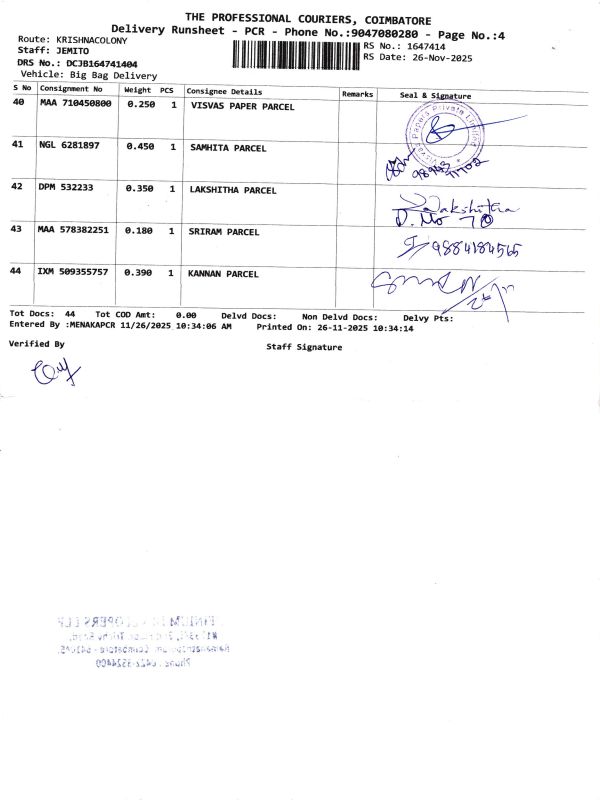 THE PROFESSIONAL COURIERS, COIMBATORE
Delivery Runsheet - PCR - Phone No.:9047080280 - Page No.:4
Route: KRISHNACOLONY
Staff: JEMITO
DRS No.: DCJB164741404
Vehicle: Big Bag Delivery
RS No.: 1647414
RS Date: 26-Nov-2025
S No Consignment No Weight PCS Consignee Details Remarks Seal & Signature
40 MAA 710450800 0.250 1 VISVAS PAPER PARCEL
Visvas Papers Private Limited
41 NGL 6281897 0.450 1 SAMHITA PARCEL
42 DPM 532233 0.350 1 LAKSHITHA PARCEL
Lakshitha
D. No 70
43 MAA 578382251 0.180 1 SRIRAM PARCEL
9884184565
44 IXM 509355757 0.390 1 KANNAN PARCEL
Tot Docs: 44 Tot COD Amt: 0.00 Delvd Docs: Non Delvd Docs: Delvy Pts:
Entered By :MENAKAPCR 11/26/2025 10:34:06 AM Printed On: 26-11-2025 10:34:14
Verified By
Staff Signature